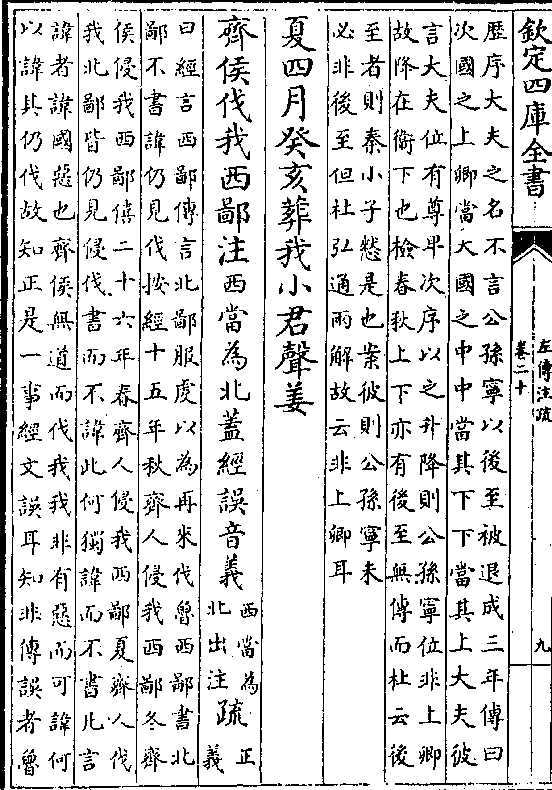 欽定四庫全書
左傳注疏
卷二十
九
歴序大夫之名不言公孫寧以後至被退成三年傳曰
次國之上卿當大國之中中當其下下當其上大夫彼
言大夫位有尊卑次序以之升降則公孫寧位非上卿
故降在衞下也檢春秋上下亦有後至無傳而杜云後
至者則秦小子憗是也案彼則公孫寧未
必非後至但杜弘通兩解故云非上卿耳
夏四月癸亥葬我小君聲姜
齊侯伐我西鄙注西當為北蓋經誤音義西當為
北出注疏正
義
曰經言西鄙傳言北鄙服䖍以為再來伐魯西鄙書北
鄙不書諱仍見伐按經十五年秋齊人侵我西鄙冬齊
侯侵我西鄙僖二十六年春齊人侵我西鄙夏齊人伐
我北鄙皆仍見侵伐書而不諱此何獨諱而不書凡言
諱者諱國惡也齊侯無道而伐我我非有惡而可諱何
以諱其仍伐故知正是一事經文誤耳知非傳誤者魯